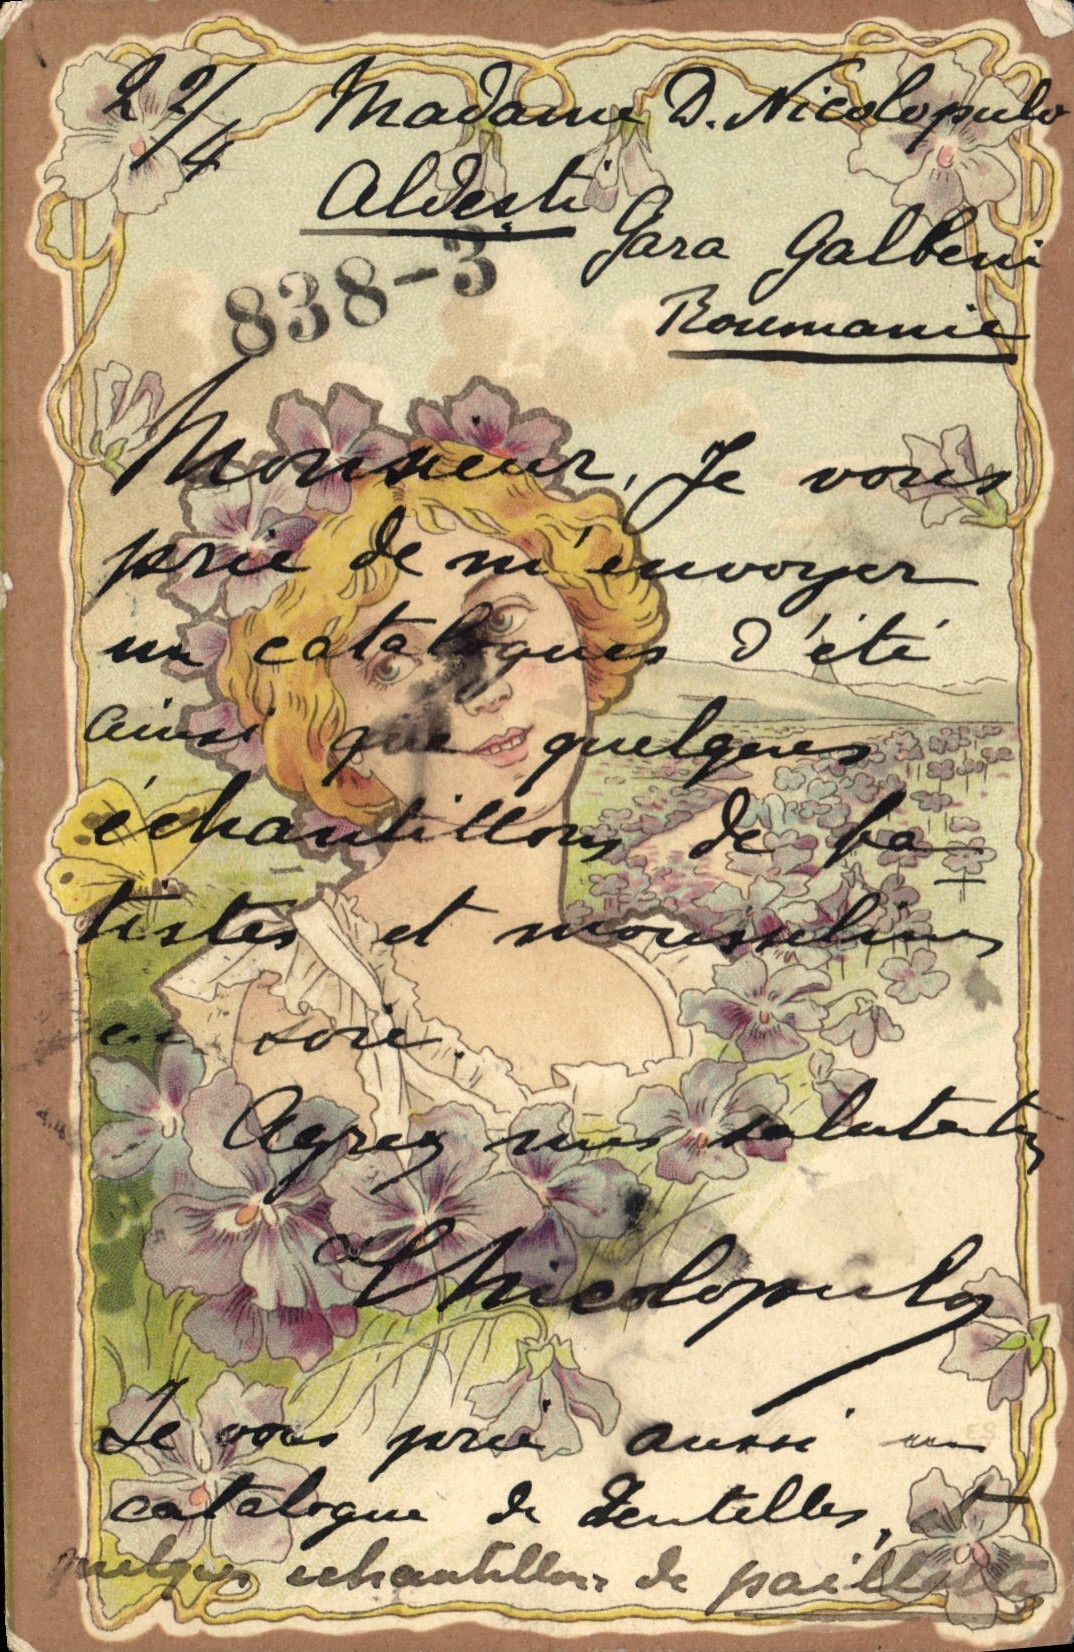 22/4 Madame D. Nicolopulo
Aldești Gara Galbeni
Roumanie
838-3
Monsieur, Je vous
prie de m'envoyer
un catalogues d'été
ainsi que quelques
échantillons de ba
tistes et mousselines
en soie.
Agrez mes salutents
Nicolopulo
Je vous prie aussi un
catalogue de Dentelles, et
quelques echantillons de paillettes